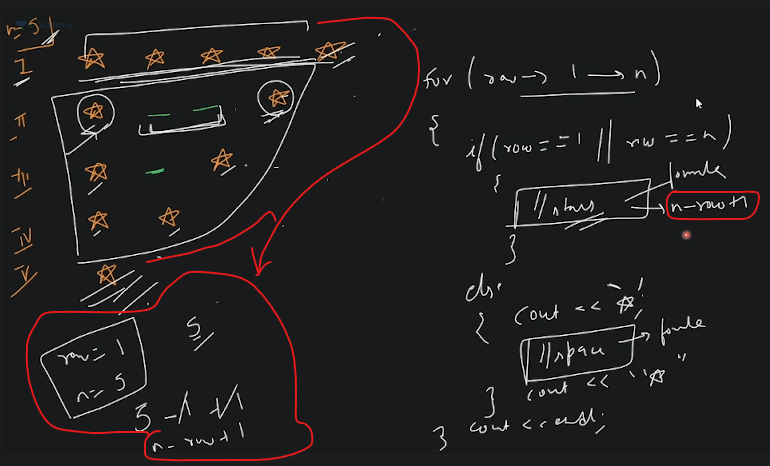 n=5
I
II
III
IV
V
row = 1
n = 5
5
5 - 1 + 1
n - row + 1
for ( row → 1 → n )
{
if ( row == 1 || row == n )
{
// stars
formula
n - row + 1
}
else
{ cout << "☆";
// space → formula
} cout << "☆"
} cout << endl;